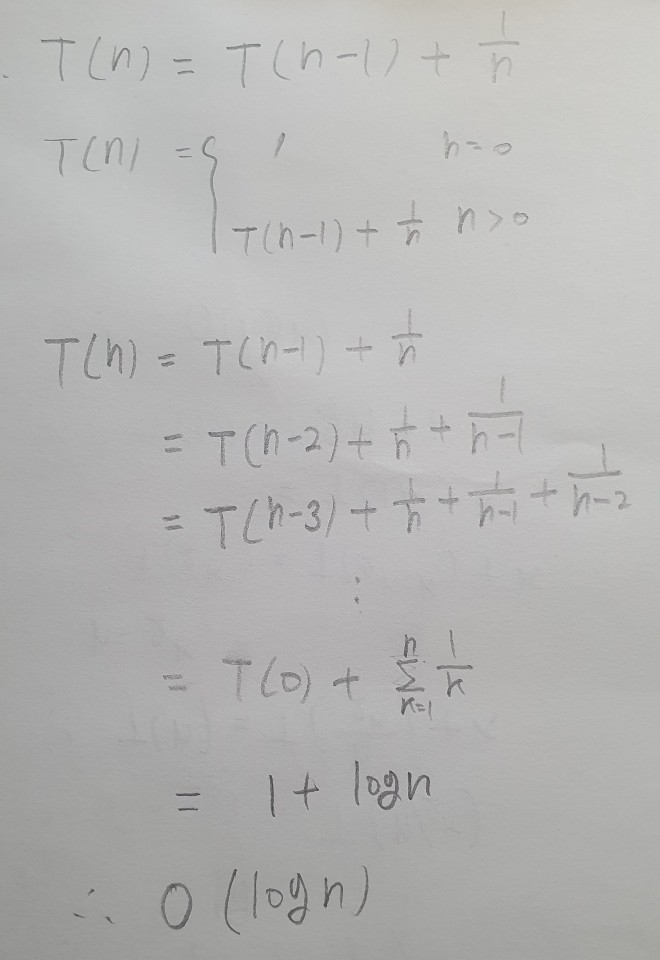 T(n) = T(n-1) + 1/n
T(n) = { 1 n=0
T(n-1) + 1/n n>0
T(n) = T(n-1) + 1/n
= T(n-2) + 1/n + 1/(n-1)
= T(n-3) + 1/n + 1/(n-1) + 1/(n-2)
⋮
= T(0) + ∑_{k=1}^{n} 1/k
= 1 + logn
∴ O(logn)